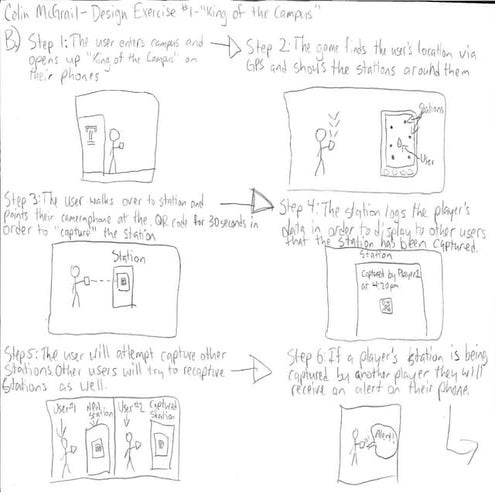 Colin McGrail - Design Exercise #1 - "King of the Campus"
B) Step 1: The user enters campus and
opens up "King of the Campus" on
their phones
Step 2: The game finds the user's location via
GPS and shows the stations around them
T
Stations
User
Step 3: The user walks over to station and
points their cameraphone at the QR code for 30 seconds in
order to "capture" the station
Station
Step 4: The station logs the player's
data in order to display to other users
that the station has been captured.
Station
Captured by Player1
at 4:20pm
Step 5: The user will attempt capture other
Stations. Other users will try to recapture
Stations as well.
User#1
Station
User#2
Captured
Station
Step 6: If a player's station is being
captured by another player they will
receive an alert on their phone.
Alert!